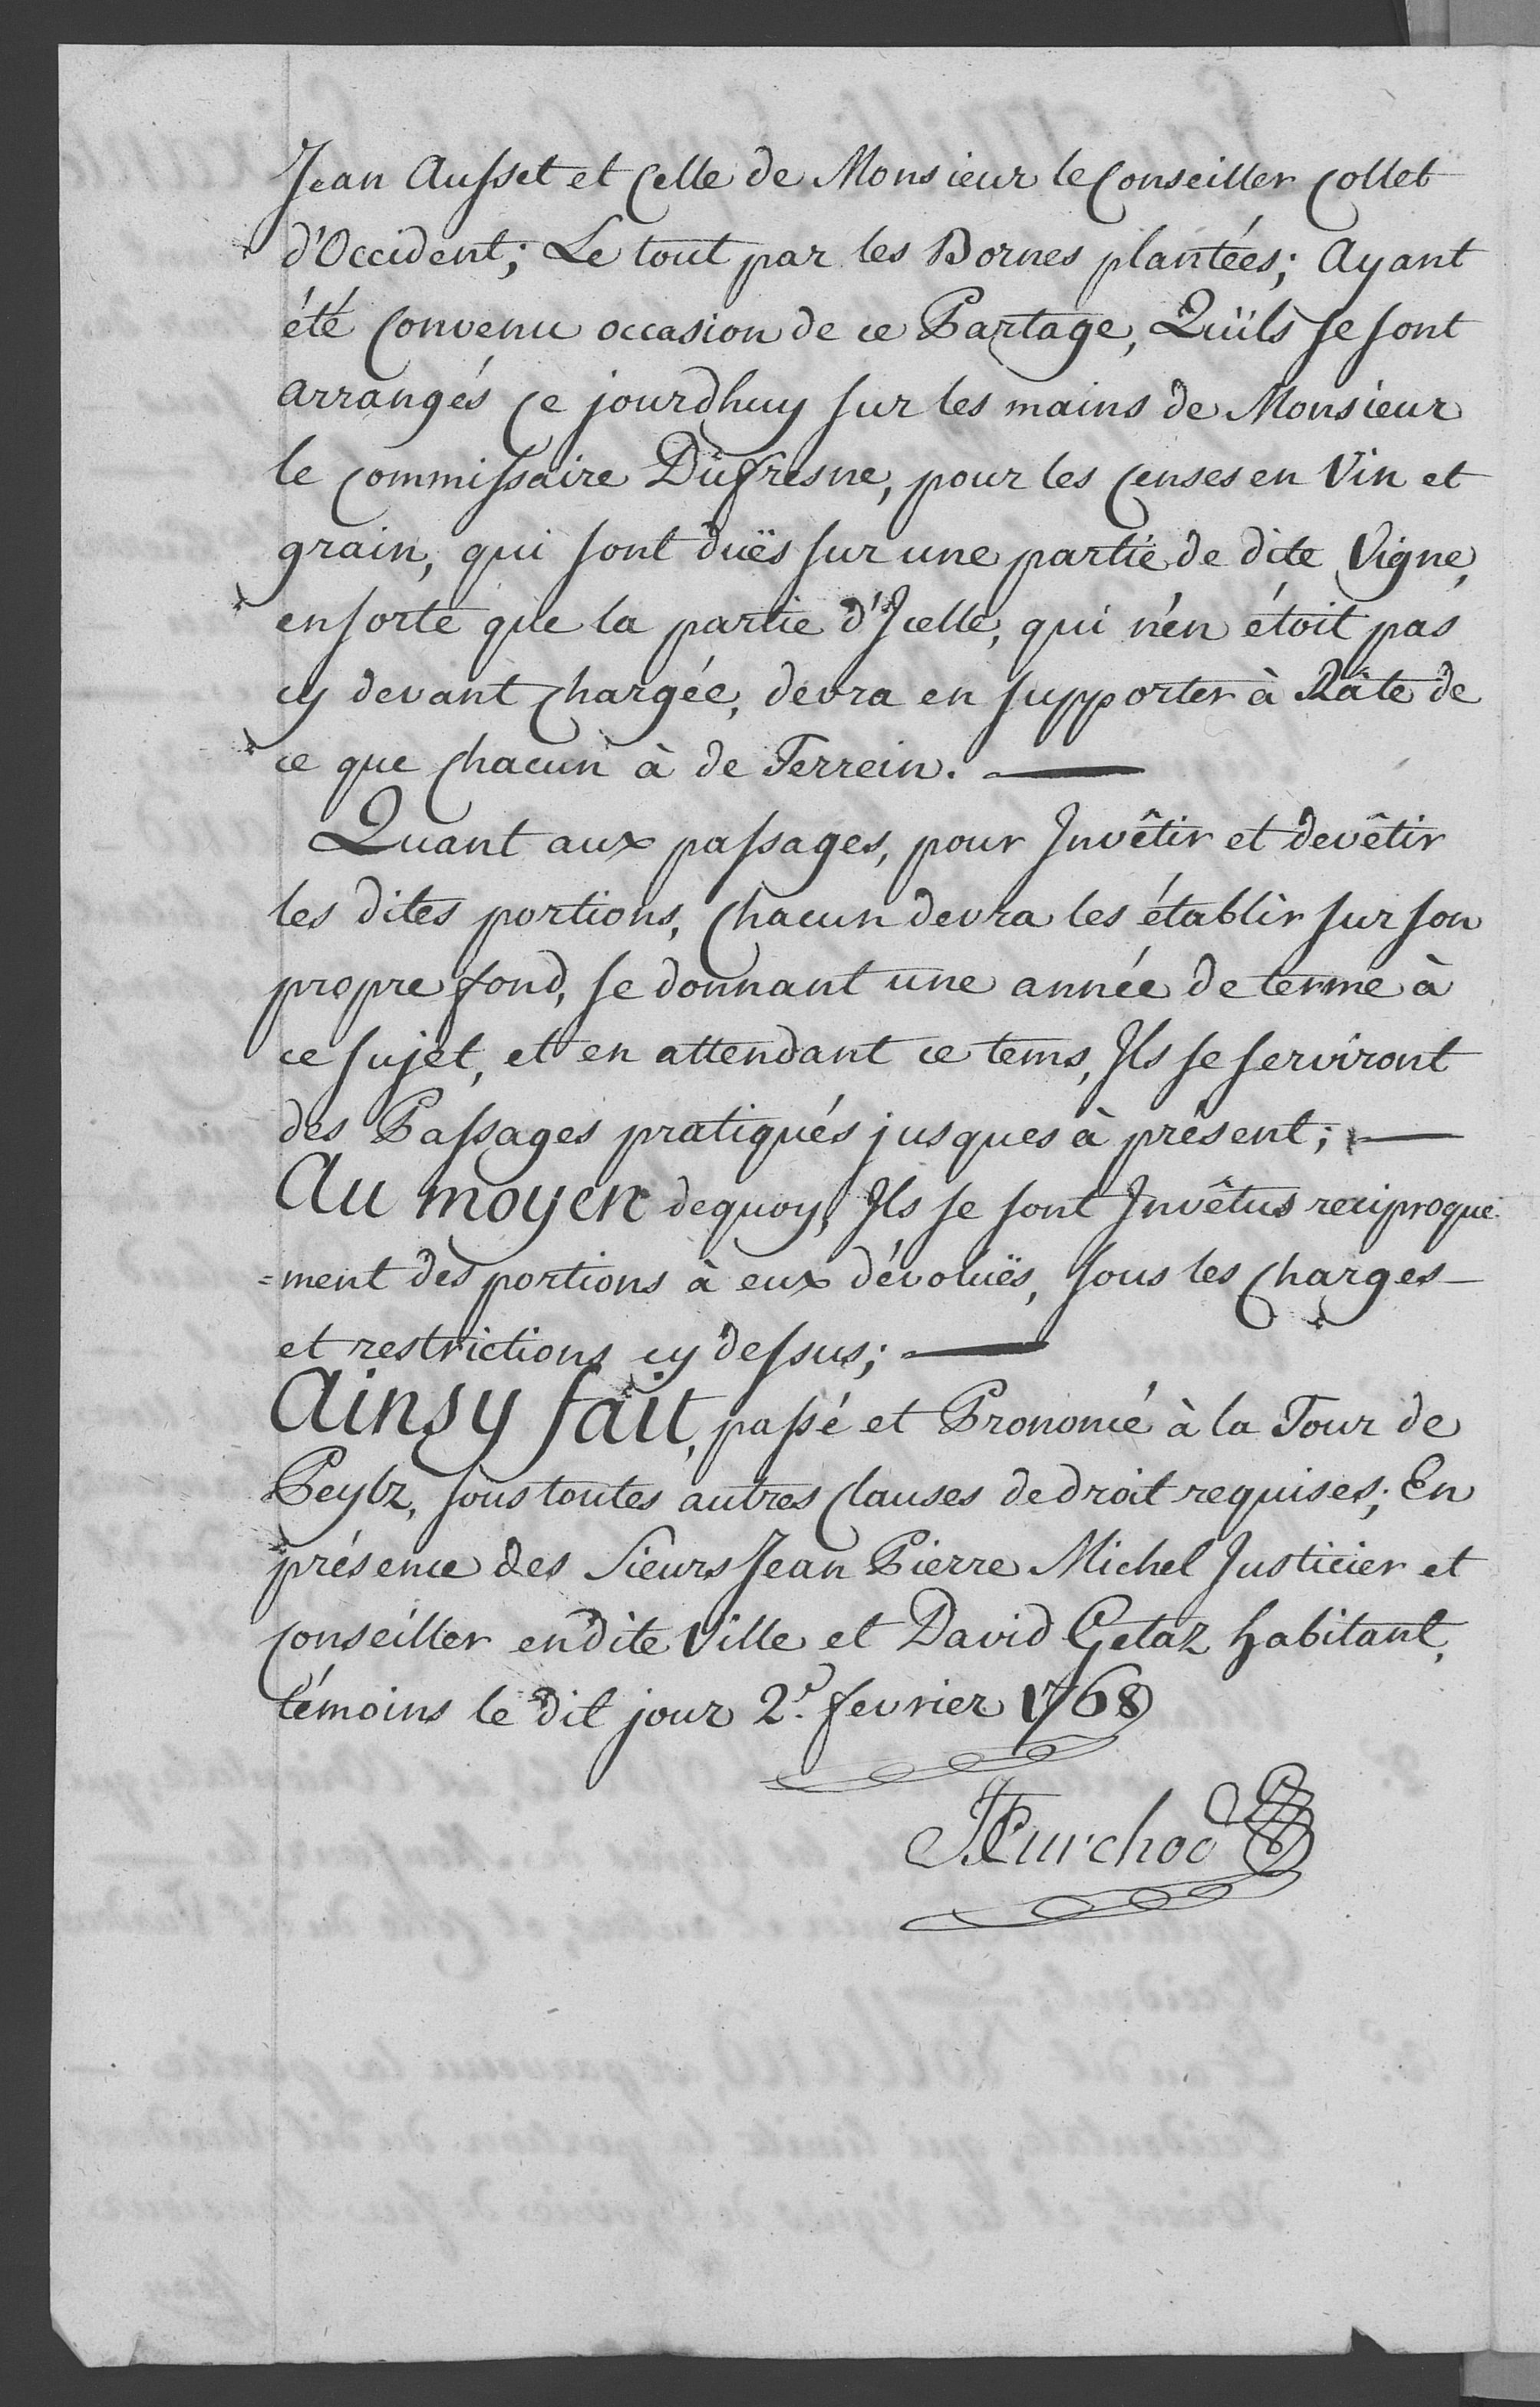 Jean Ausset et Celle de Monsieur le Conseiller Collet
d'Occident; Le tout par les Bornes plantées; Ayant
été Convenu occasion de ce Partage, Qu'ils se sont
arrangés Ce jourdhuy sur les mains de Monsieur
le Commissaire Dufresne, pour les Censes en Vin et
grain, qui sont duës sur une partie de dite Vigne,
ensorte que la partie d'Icelle, qui n'en étoit pas
cy devant Chargée, devra en supporter à Râte de
ce que Chacun à de Terrein. —
Quant aux passages, pour Invêtir et devêtir
les dites portions, Chacun devra les établir sur son
propre fond, se donnant une année de terme à
ce sujet, et en attendant ce tems, Ils se serviront
des Passages pratiqués jusques à présent; —
Au moyen dequoy, Ils se sont Invêtus reciproque
=ment des portions à eux dévoluës, sous les Charges —
et restrictions cy dessus; —
Ainsy fait, passé et Prononcé à la Tour de
Peylz, sous toutes autres Clauses de droit requises; En
présence des Sieurs Jean Pierre Michel Justicier et
Conseiller en dite Ville et David Getaz habitant,
témoins le dit jour 2.d fevrier 1768
Curchod